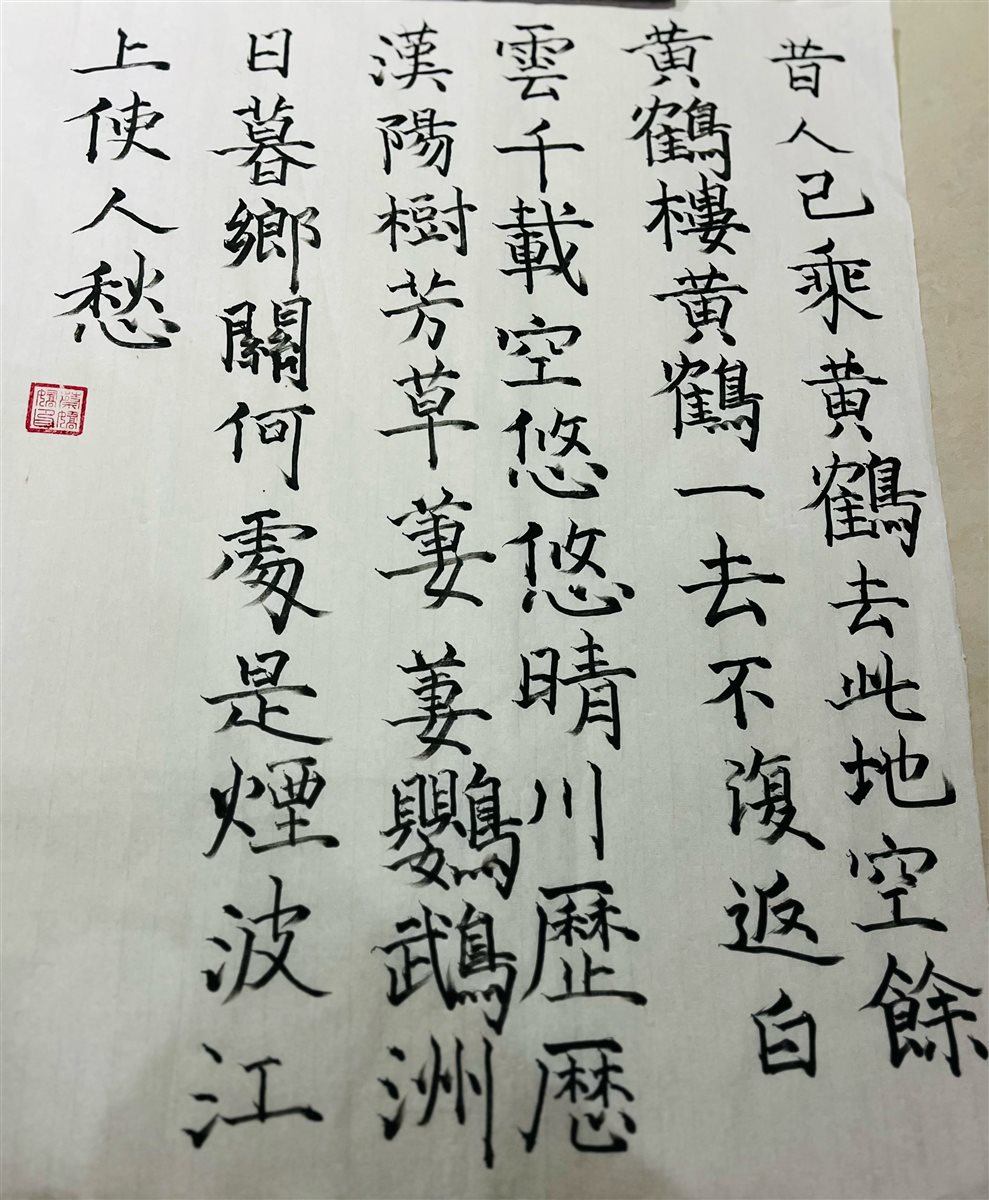 昔人已乘黄鶴去此地空餘
黄鶴樓黄鶴一去不復返白
雲千載空悠悠晴川歴歴
漢陽樹芳草萋萋鸚鵡洲
日暮鄉關何處是煙波江
上使人愁